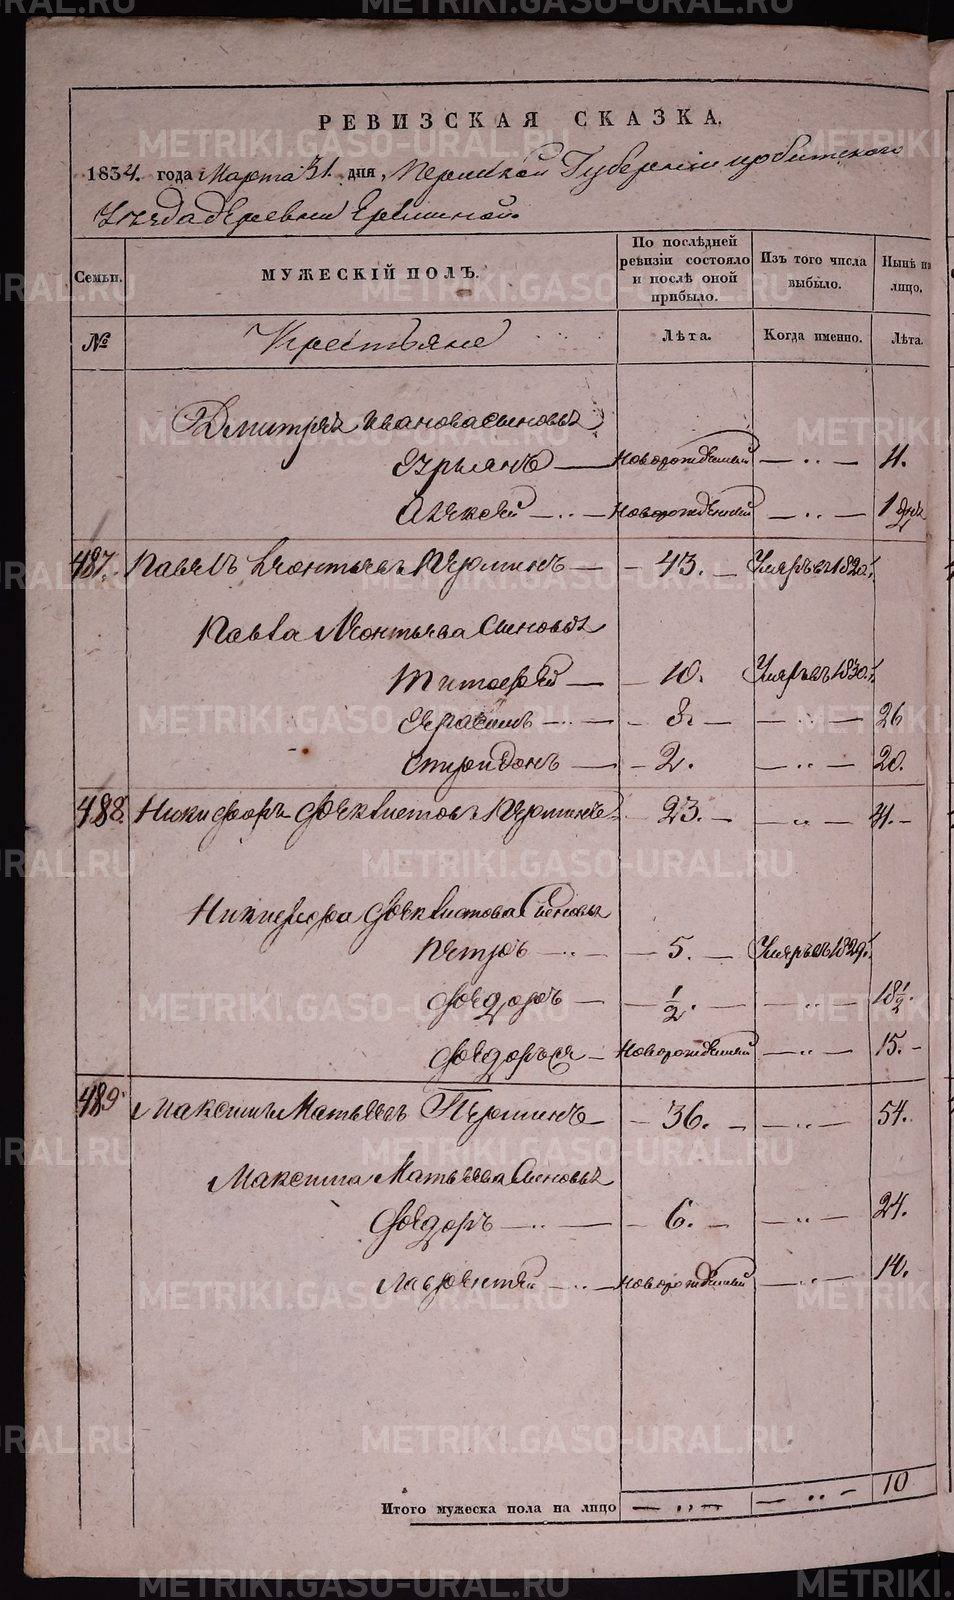 РЕВИЗСКАЯ СКАЗКА.
1834. года Марта 31. дня, Пермской Губернiи Ирбитскаго
Уезда деревни Ерёминой.
Семьи. МУЖЕСКІЙ ПОЛЪ. По послѣдней ревизіи состояло и послѣ оной прибыло. Изъ того числа выбыло. Нынѣ на лицо.
№ Крестьяне Лѣта. Когда именно. Лѣта.
Дмитрея Иванова сыновья
Новорожденный — „ — 4.
Алексей — „ — Новорожденный — „ — 1 дня
487. Павелъ Леонтьевъ Пермин — 43. — Умеръ въ 1820.
Павла Леонтьева Сыновья
Тимофей — 10. Умеръ въ 1830.
Герасимъ — „ — 8. — „ — 26
Спиридонъ — 2. — „ — 20.
488. Никифоръ Феклистовъ Перминъ — 23. — „ — 41.
Никифора Феклистова Сыновья
Петръ — „ — 5. — Умеръ въ 1829.
Федоръ — 1/2. — „ — 18 1/2.
Новорожденный — „ — 15.
489. Максимъ Матвеевъ Перминъ — 36. — „ — 54.
Максима Матвеева Сыновья
Федоръ — „ — 6. — „ — 24.
Лаврентей — „ — Новорожденный — „ — 14.
Итого мужеска пола на лицо — „ — — „ — 10
METRIKI.GASO-URAL.RU